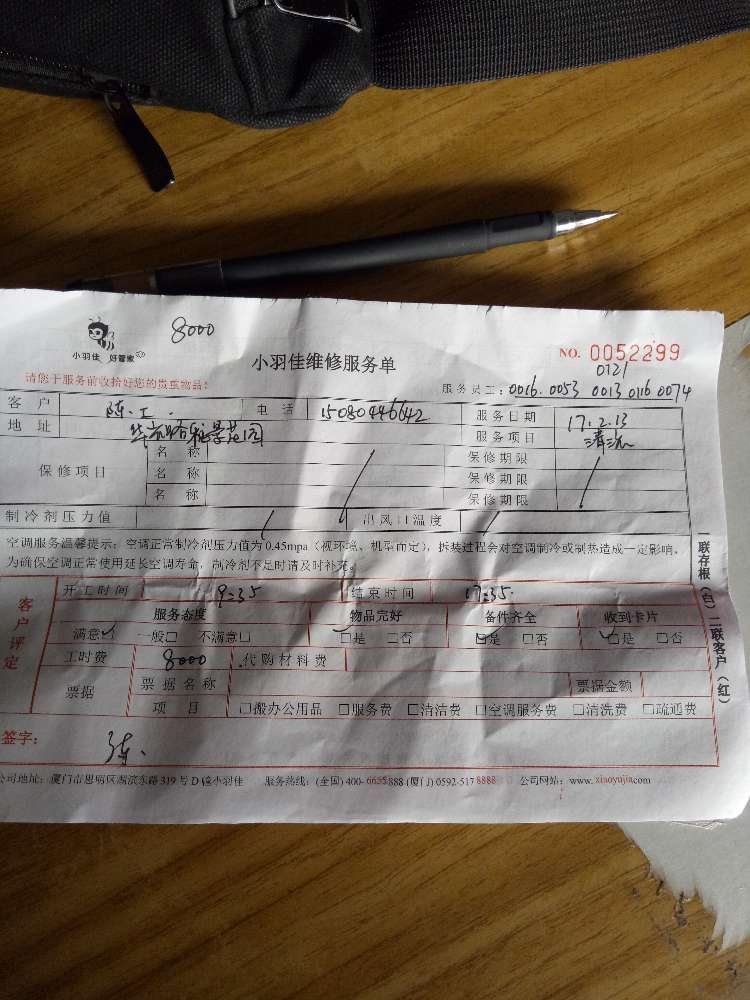 8000
小羽佳 好管家
小羽佳维修服务单
NO. 0052299
请您于服务前收拾好您的贵重物品!
0121
服务员工: 0016. 0053 0013 0116 0074
客户 陈.工. 电话 15080446642 服务日期 17.2.13
地址 花园 服务项目 清洗
保修项目 名称 保修期限
名称 保修期限
名称 保修期限
制冷剂压力值 出风口温度
空调服务温馨提示: 空调正常制冷剂压力值为0.45mpa(视环境、机型而定), 拆装过程会对空调制冷或制热造成一定影响,
为确保空调正常使用延长空调寿命, 制冷剂不足时请及时补充。
客户评定
开工时间 9:35 结束时间 17:35.
服务态度 物品完好 备件齐全 收到卡片
满意☑ 一般□ 不满意□ ☑是 □否 ☑是 □否 ☑是 □否
工时费 8000 代购材料费
票据 票据名称 票据金额
项目 □搬办公用品 □服务费 □清洁费 □空调服务费 □清洗费 □疏通费
签字: 陈.
公司地址: 厦门市思明区湖滨东路319号D幢小羽佳 服务热线: (全国) 400-6655888 (厦门) 0592-5178888 公司网站: www.xiaoyujia.com
一联存根 (白) 二联客户 (红)